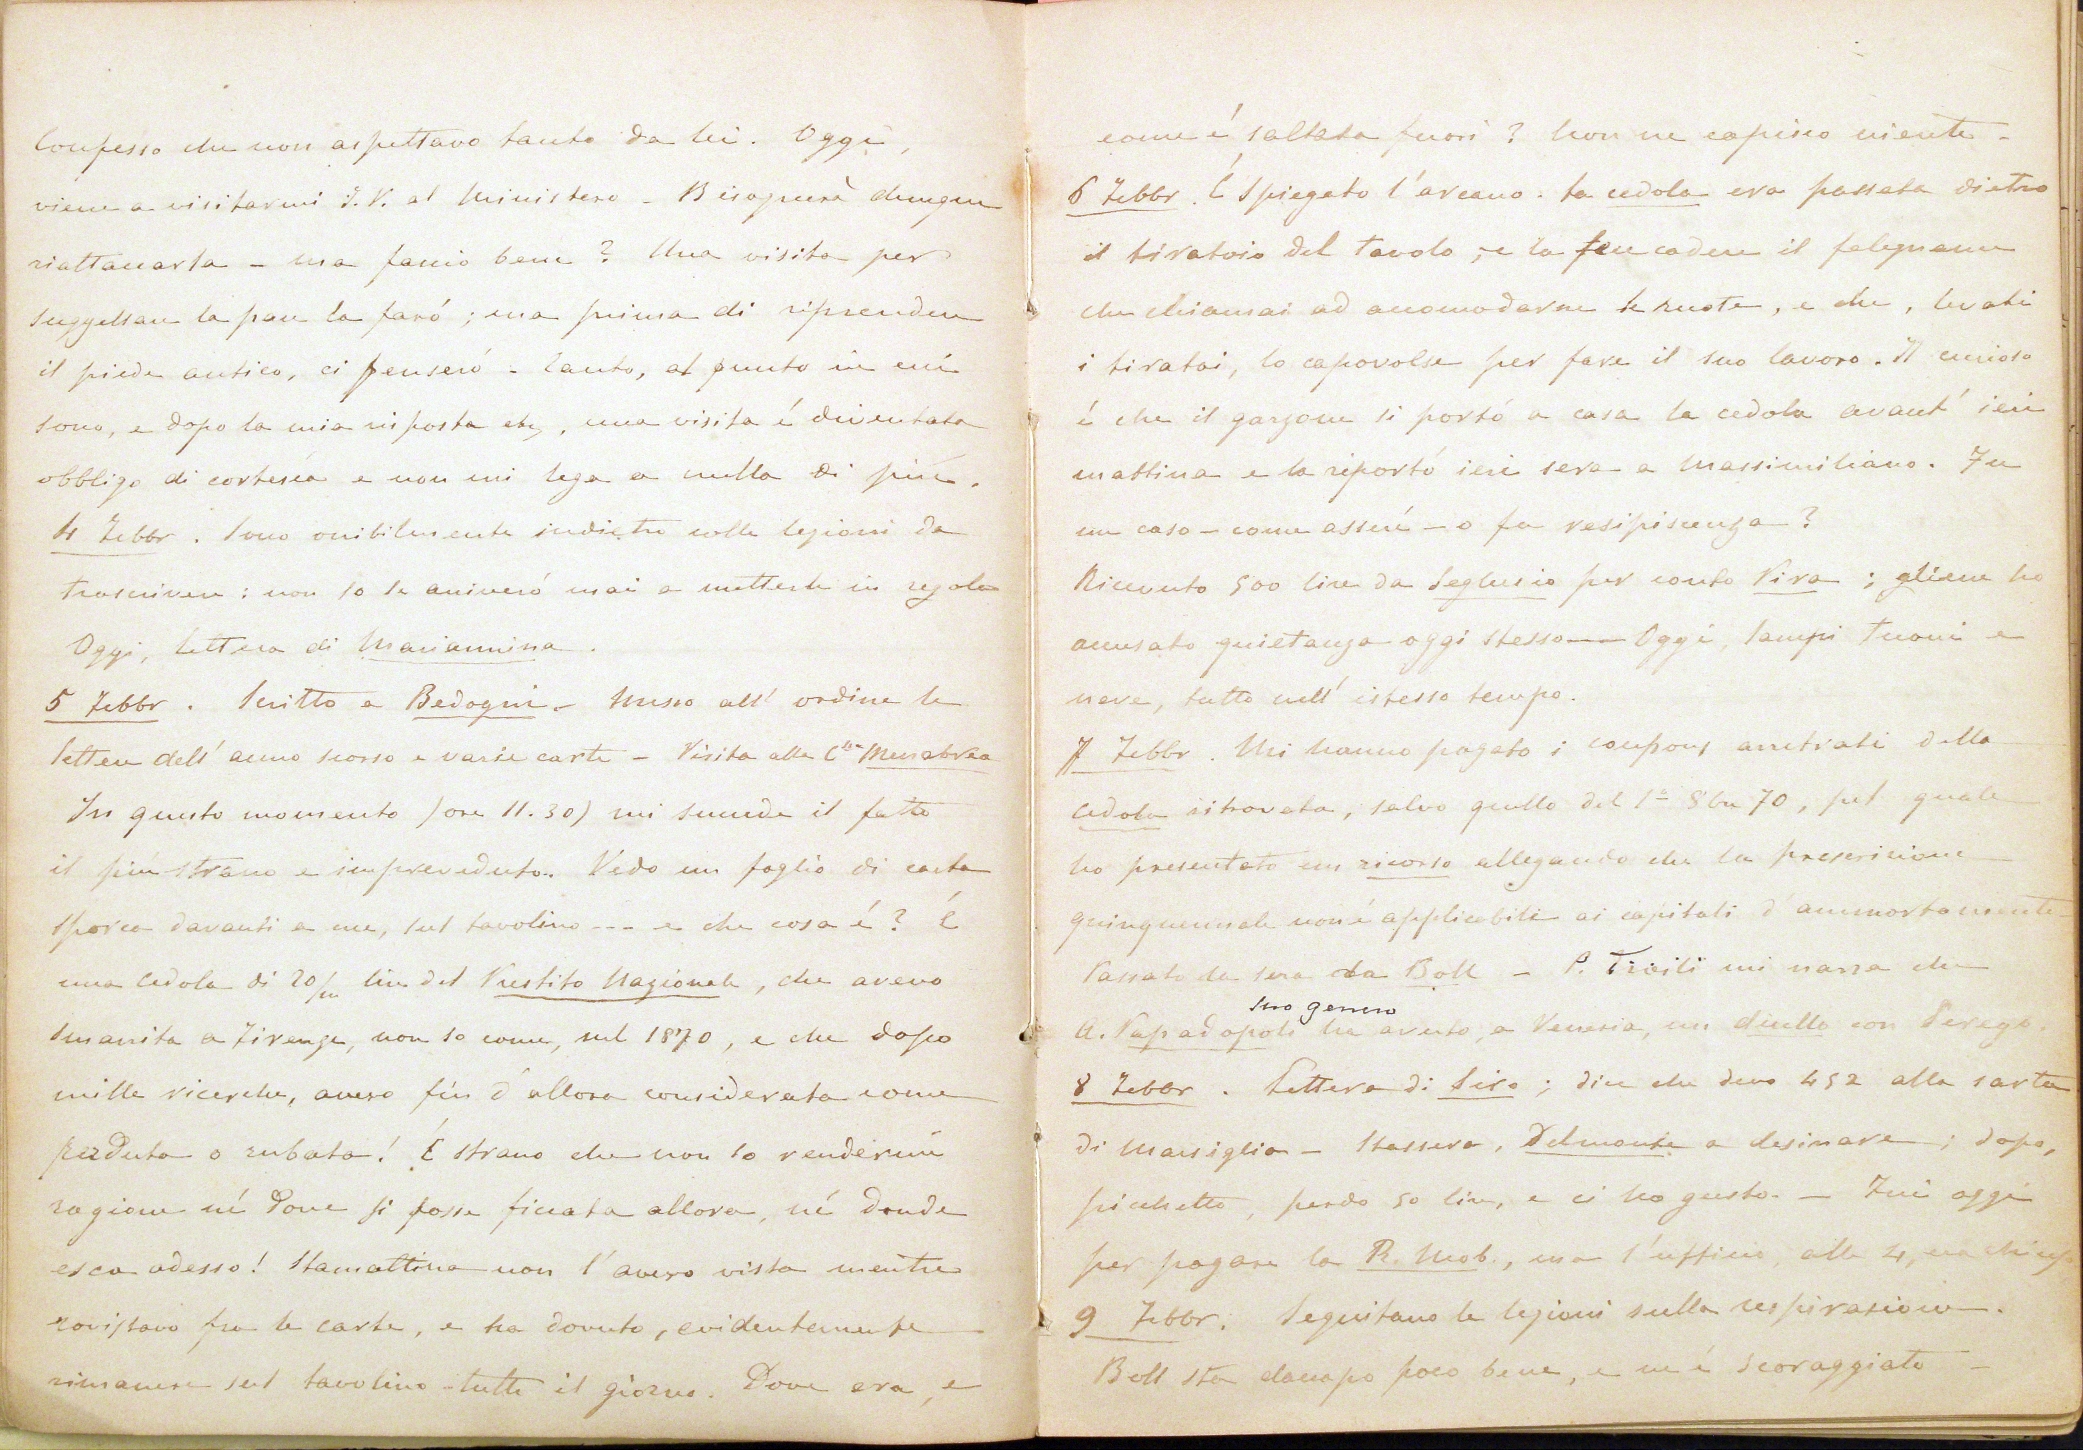 Confesso che non aspettavo tanto da lei. Oggi,
viene a visitarmi J. V. al Ministero - Bisognerà dunque
riattaccarla - ma faccio bene? Una visita per
suggellare la pace la faró; ma prima di riprendere
il piede antico, ci penseró - tanto, al punto in cui
sono, e dopo la mia risposta etc, una visita é diventata
obbligo di cortesia e non mi lega a nulla di più.
4 Febbr. Sono orribilmente indietro colle lezioni da
trascrivere: non so se arriveró mai a metterle in regola
Oggi, lettera di Mariannina.
5 Febbr. Scritto a Bedogni - Messo all'ordine le
lettere dell'anno scorso e varie carte - Visita alla C.ssa Menabrea
In questo momento (ore 11.30) mi succede il fatto
il piú strano e impreveduto. Vedo un foglio di carta
sporca davanti a me, sul tavolino --- e che cosa é? É
una cedola di 20/m lire del Prestito Nazionale, che avevo
smarrita a Firenze, non so come, nel 1870, e che dopo
mille ricerche, avevo fin d'allora considerata come
perduta o rubata! É strano che non so rendermi
ragione né dove si fosse ficcata allora, né donde
esca adesso! Stamattina non l'avevo vista mentre
rovistavo fra le carte, e ha dovuto, evidentemente
rimanere sul tavolino tutto il giorno. Dove era, e
come é saltata fuori? Non ne capisco niente -
6 Febbr. É spiegato l'arcano. La cedola era passata dietro
il tiratoio del tavolo, e la fece cadere il falegname
che chiamai ad accomodarne le ruote, e che, levati
i tiratoi, lo capovolse per fare il suo lavoro. Il curioso
é che il garzone si portó a casa la cedola avant'ieri
mattina e la riportó ieri sera a Massimiliano. Fu
un caso - come asserí - o fu resipiscenza?
Ricevuto 500 lire da Seglusio per conto Vira; gliene ho
accusato quietanza oggi stesso — Oggi, lampi tuoni e
neve, tutto nell'istesso tempo.
7 Febbr. Mi hanno pagato i coupons arretrati della
cedola ritrovata, salvo quello del 1º 8bre 70, pel quale
ho presentato un ricorso allegando che la prescrizione
quinquennale non é applicabili ai capitali d'ammortamento
Passato la sera da Boll - P. Troili mi narra che
suo genero
A. Papadopoli ha avuto, a Venezia, un duello con Perego.
8 Febbr. Lettera di Siro; dice che devo 452 alla sarta
di Marsiglia - Stassera, Delmonte a desinare; dopo,
picchetto, perdo 50 lire, e ci ho gusto. - Fui oggi
per pagare la R. Mob., ma l'ufficio, alle 4, era chiuso
9 Febbr. Seguitano le lezioni sulla respirazione.
Boll sta daccapo poco bene, e ne é scoraggiato -